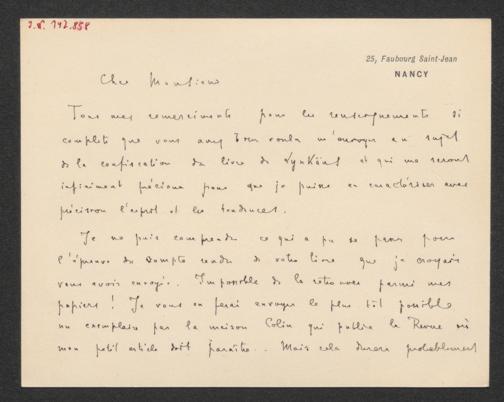 I.N. 142.858
25, Faubourg Saint-Jean
NANCY
Cher Monsieur
Tous mes remerciements pour les renseignements si
complets que vous avez bien voulu m'envoyer au sujet
de la confiscation du livre de Lynkéus et qui me seront
infiniment précieux pour que je puisse en caractériser avec
précision l'esprit et les tendances.
Je ne puis comprendre ce qui a pu se passer pour
l'épreuve du compte rendu de votre livre que je croyais
vous avoir envoyé. Impossible de la retrouver parmi mes
papiers ! Je vous en ferai envoyer le plus tôt possible
un exemplaire par la maison Colin qui publie la Revue où
mon petit article doit paraître. Mais cela durera probablement